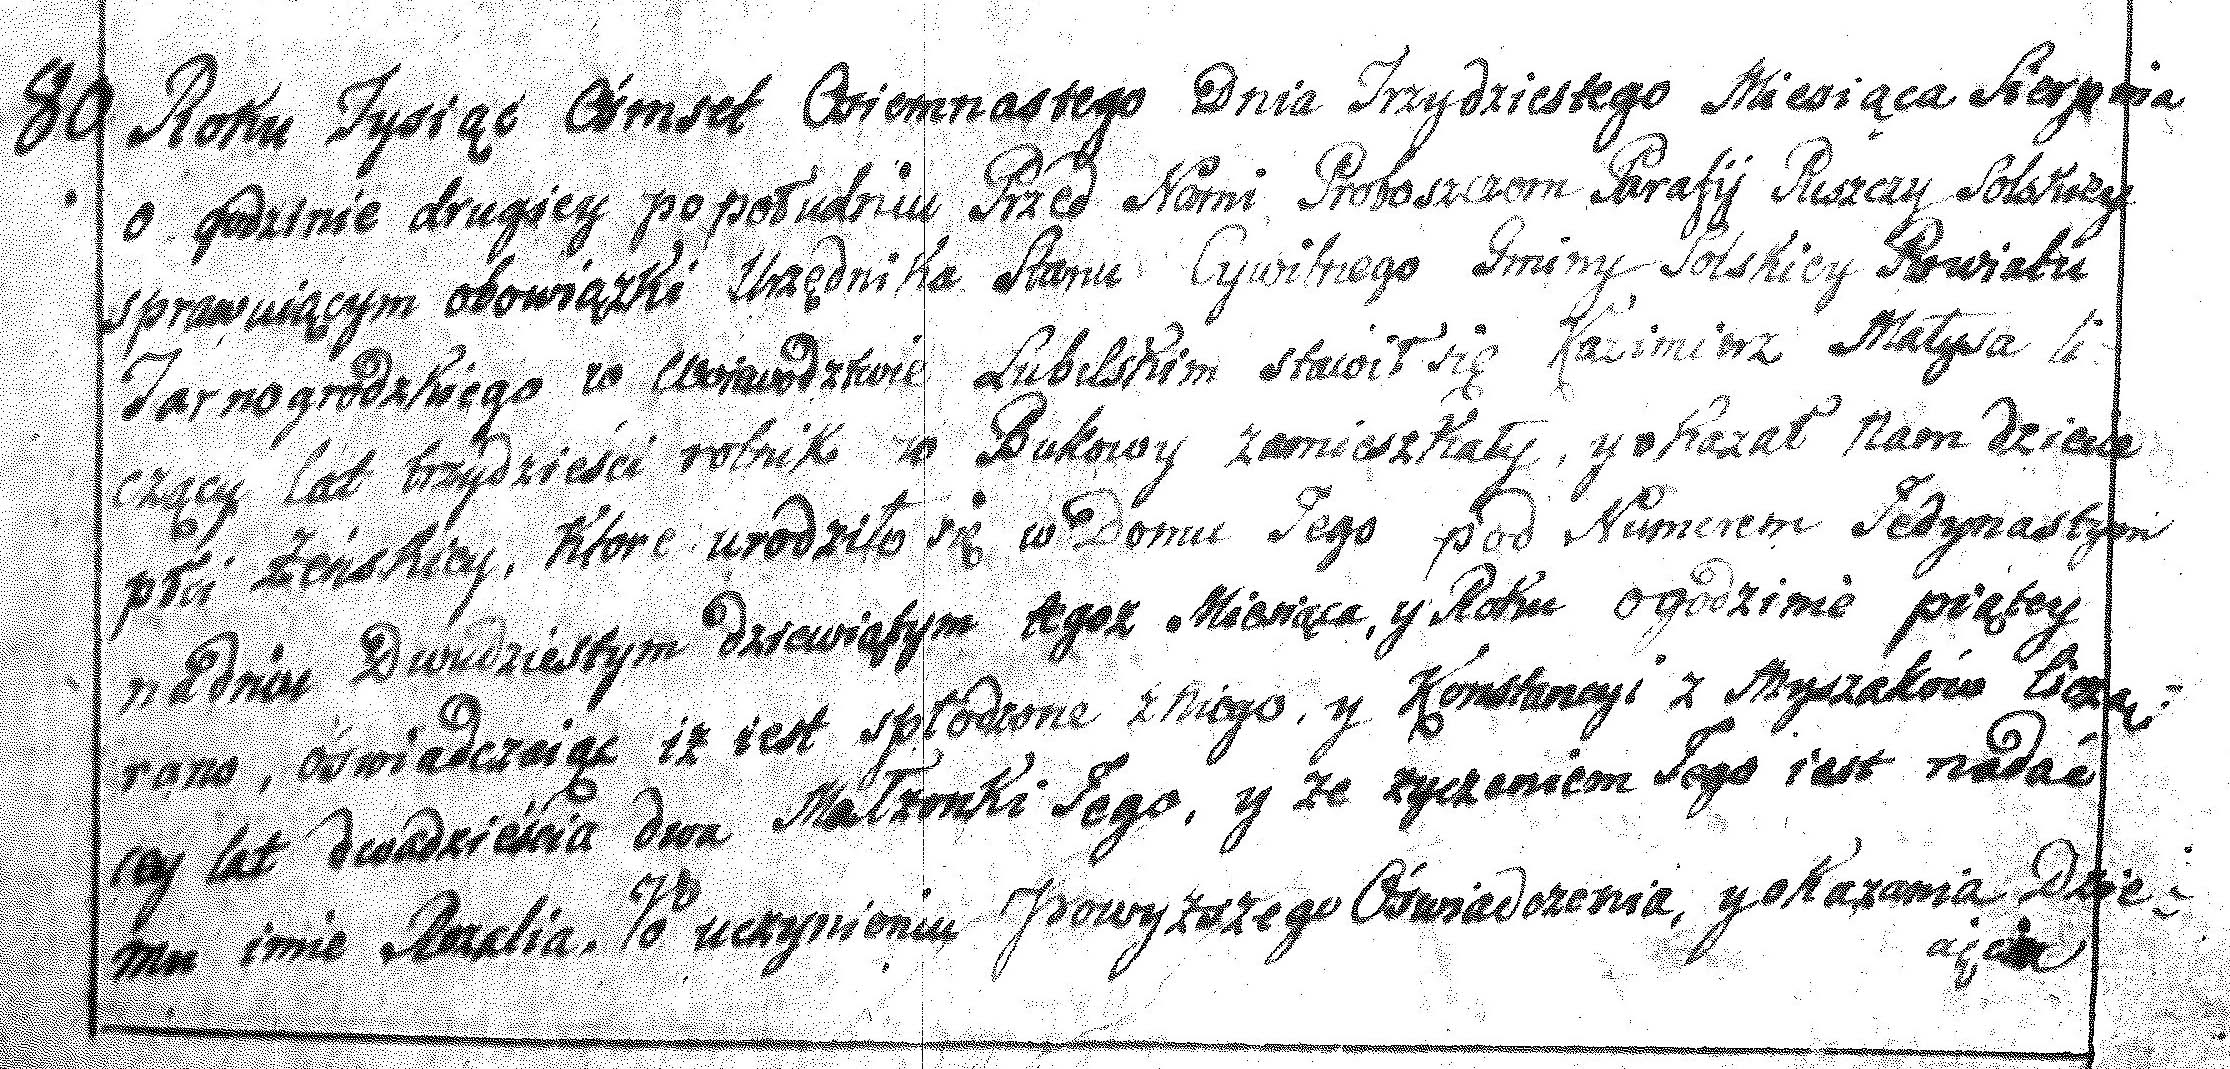 80 Roku Tysiąc Ośmset Osiemnastego Dnia Trzydziestego Miesiąca Sierpnia
o godzinie drugiey po południu Przed Nami Proboszczem Parafij Puszczy Solskiey
sprawuiącym obowiązki Urzędnika Stanu Cywilnego Gminy Solskiey Powiatu
Tarnogrodzkiego w Woiewodztwie Lubelskim stawił się Kazimierz Matysa li-
czący lat trzydzieści rolnik w Bukowy zamieszkały, y okazał nam dziecie
płci żeńskiey, które urodziło się w Domu Jego pod Numerem Jedynastym
na dniu Dwudziestym dziewiątym tegoż Miesiąca, y Roku o godzinie piątey
rano, oświadczaiąc iż iest spłodzone z niego, y Konstancyi z Myszaków liczą-
cey lat dwadzieścia dwa Małżonki Jego, y że życzeniem Jego iest nadać
mu imie Rozalia. Po uczynieniu powyższego Oświadczenia, y okazania Dzie-